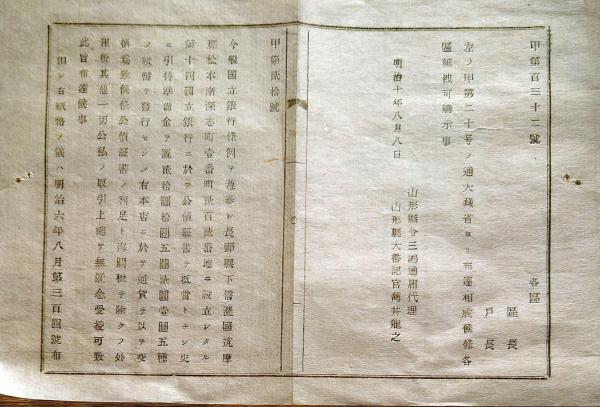 甲第百三十二號
各區
區長
戸長
左ノ甲第二十号ノ通大藏省ヨリ布達相成候條各
區無洩可觸示事
明治十年八月八日
山形縣令三島通庸代理
山形縣大書記官薄井龍之
甲第貳拾號
今般國立銀行條例ヲ遵奉シ長野縣下信濃國筑摩
郡松本南深志町壹番町貳百 番地ニ設立シタル
第十四國立銀行ニ於テ公債證書ヲ抵當トナシ交
引換準備金ヲ 貳拾圓拾圓五圓貳圓壹圓五種
ノ紙幣ヲ發行セシメ右本店ニ於テ通貨ヲ以テ交
換爲致候條公債證書ノ利足ト海關税ヲ除クノ外
租税其他一切公私ノ取引上總テ無疑念受授可致
此旨布達候事
但シ右紙幣ノ儀ハ明治六年八月第三百四號布